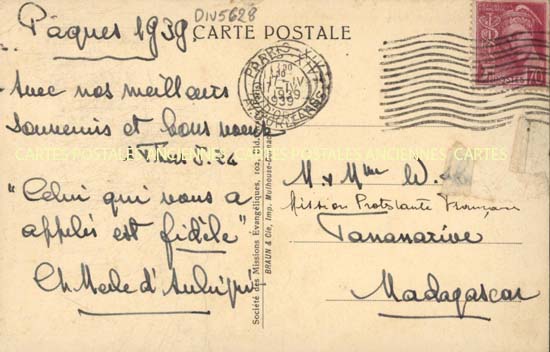 DIV5628
Pâques 1939.
CARTE POSTALE
Avec nos meilleurs
souvenirs et bons vœux
Thes. 5. 24
"Celui qui vous a
appelés est fidèle"
PARIS XIV
1939
AV. D'ORLEANS
POSTES
70
M. & Mme W.
Mission Protestante Française
Tananarive
Madagascar
Société des Missions Evangéliques, 102, Bld.
BRAUN & Cie, Imp. Mulhouse-Dornach
CARTES POSTALES ANCIENNES CARTES POSTALES ANCIENNES CARTES